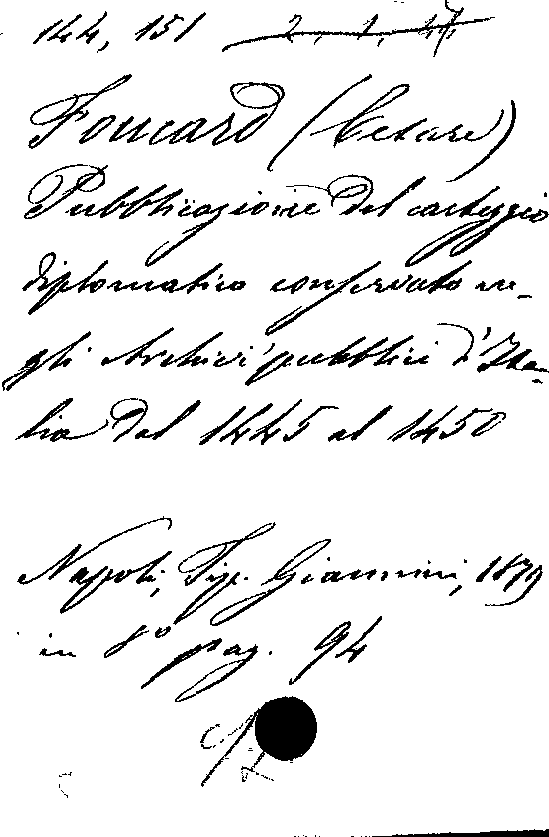 144, 151 2, 1, 47
Foucard (Cesare)
Pubblicazione del carteggio
diplomatico conservato ne-
gli Archivi pubblici d'Ita-
lia dal 1445 al 1450
Napoli, Tip. Giannini, 1879
in 8º pag. 94